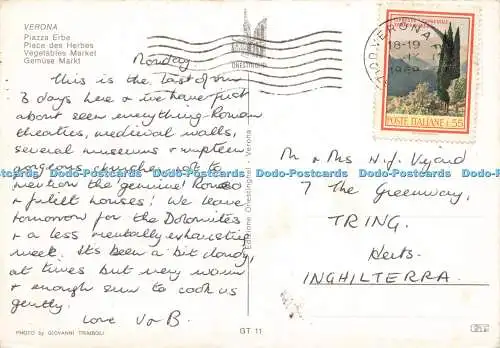 VERONA
Piazza Erbe
Place des Herbes
Vegetables Market
Gemüse Markt
Monday
This is the last of our
3 days here & we have just
about seen everything - Roman
theatres, medieval walls,
several museums & umpteen
gorgeous churches, not to
mention the 'genuine' Romeo
& Juliet houses! We leave
tomorrow for the Dolomites
& a less mentally exhausting
week. It's been a bit cloudy,
at times but very warm
& enough sun to cook us
gently.
Love V & B.
PHOTO by GIOVANNI TRIMBOLI
Edizione Onestinghel - Verona
GT 11
ONESTINGHEL
VERONA
18-19
POSTE ITALIANE L.55
Mr & Mrs N.J.
7 The Greenway,
TRING.
Herts.
INGHILTERRA.
Dodo-Postcards Dodo-Postcards Dodo-Postcards Dodo-Postcards Dodo-Postcards Dodo-Postcards